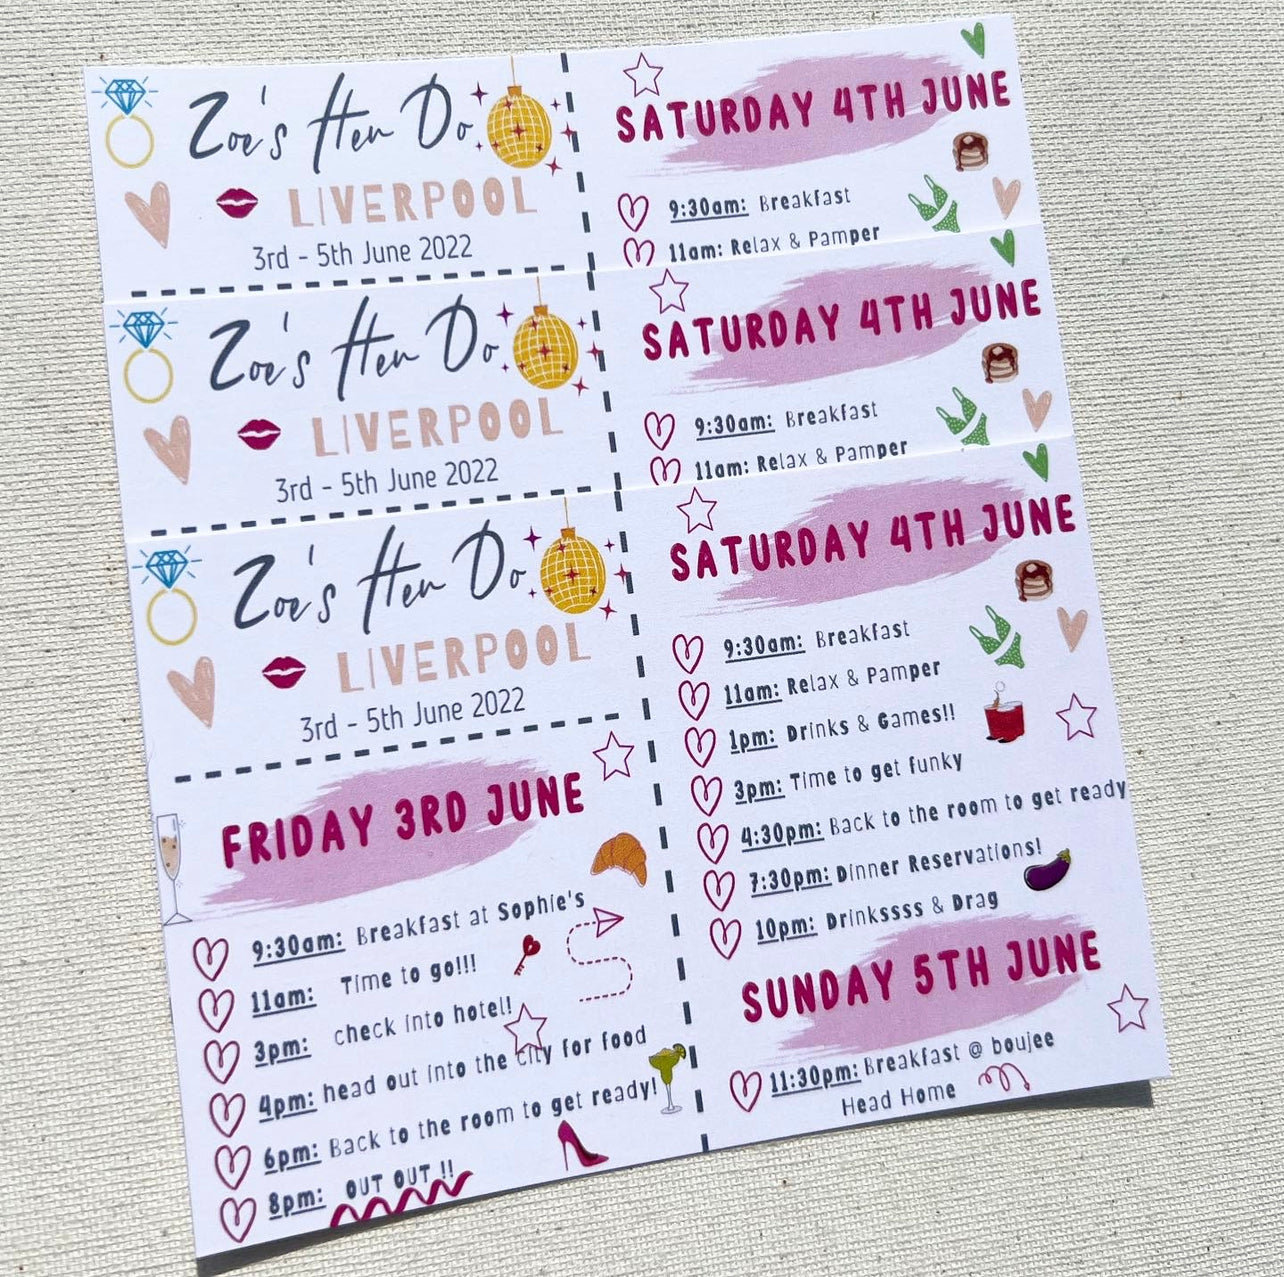 Zoe's Hen Do
LIVERPOOL
3rd - 5th June 2022
SATURDAY 4TH JUNE
9:30am: Breakfast
11am: Relax & Pamper
Zoe's Hen Do
LIVERPOOL
3rd - 5th June 2022
SATURDAY 4TH JUNE
9:30am: Breakfast
11am: Relax & Pamper
Zoe's Hen Do
LIVERPOOL
3rd - 5th June 2022
FRIDAY 3RD JUNE
9:30am: Breakfast at Sophie's
11am: Time to go!!!
3pm: check into hotel!
4pm: head out into the city for food
6pm: Back to the room to get ready!
8pm: OUT OUT !!
SATURDAY 4TH JUNE
9:30am: Breakfast
11am: Relax & Pamper
1pm: Drinks & Games!!
3pm: Time to get funky
4:30pm: Back to the room to get ready
7:30pm: Dinner Reservations!
10pm: Drinkssss & Drag
SUNDAY 5TH JUNE
11:30pm: Breakfast @ boujee
Head Home